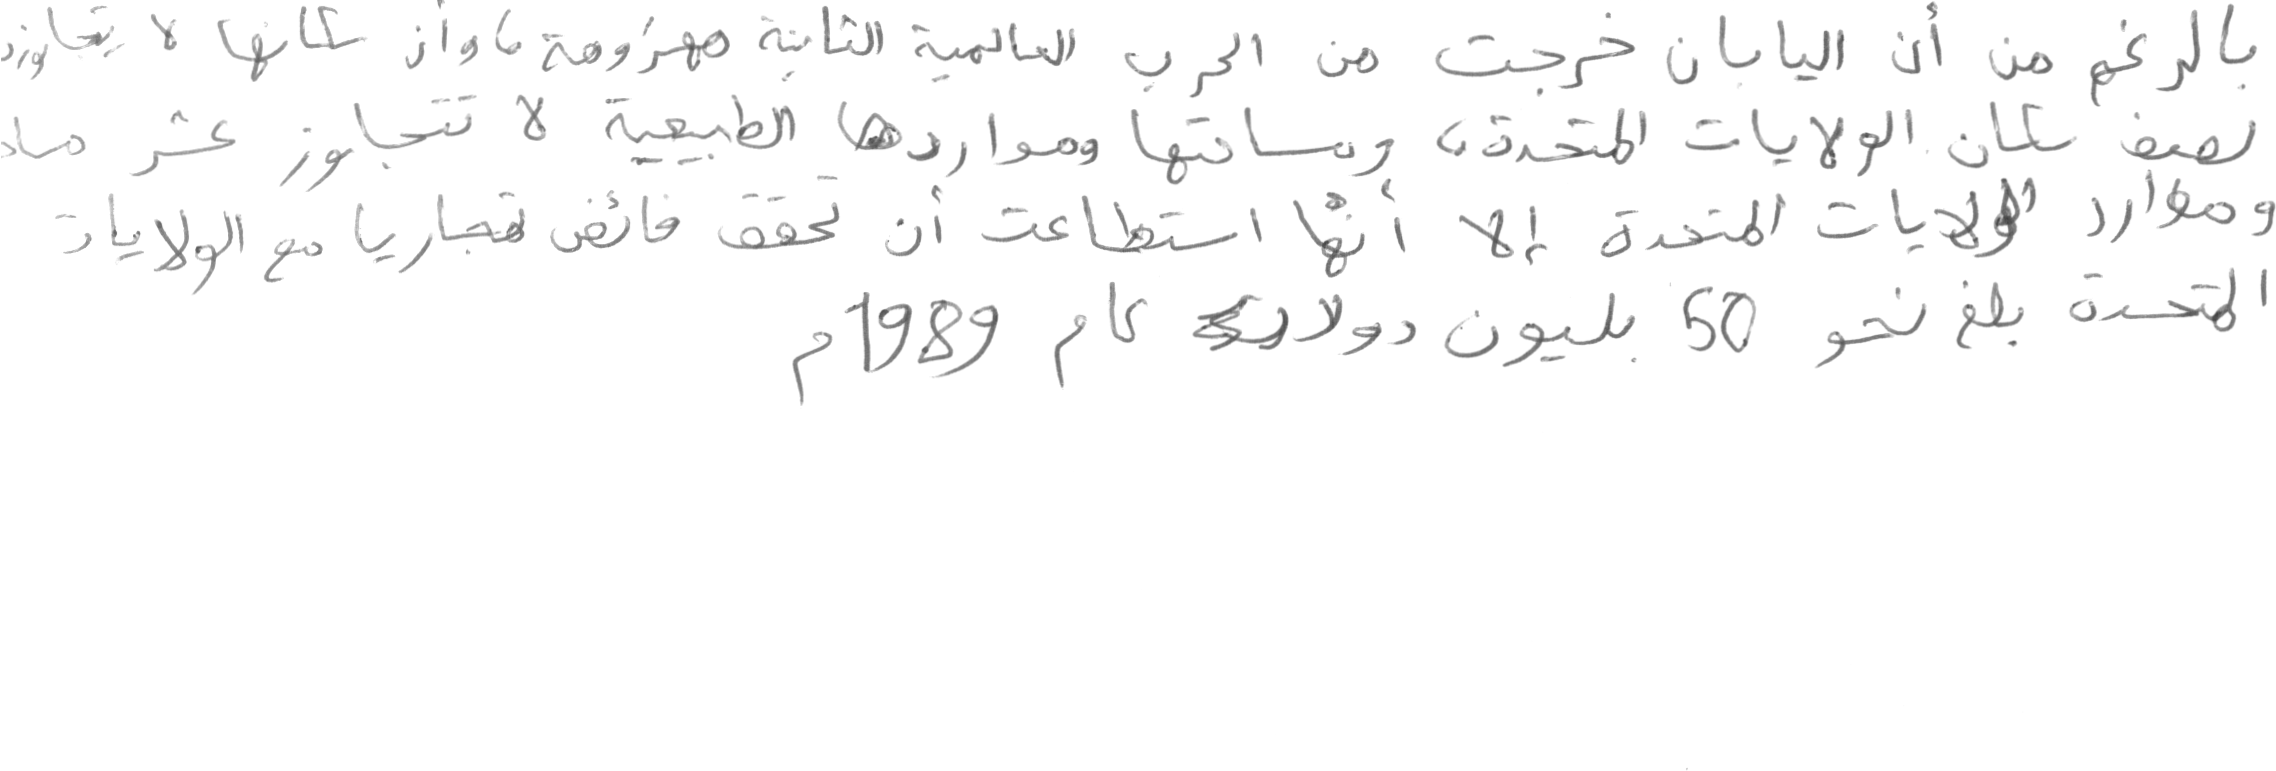 بالرغم من أن اليابان خرجت من الحرب العالمية الثانية مهزومة، وأن سكانها لا يتجاوز
نصف سكان الولايات المتحدة، ومساحتها ومواردها الطبيعية لا تتجاوز عشر
وموارد الولايات المتحدة إلا أنها استطاعت أن تحقق فائض تجاريا مع الولايات
المتحدة بلغ نحو 50 بليون دولار عام 1989م